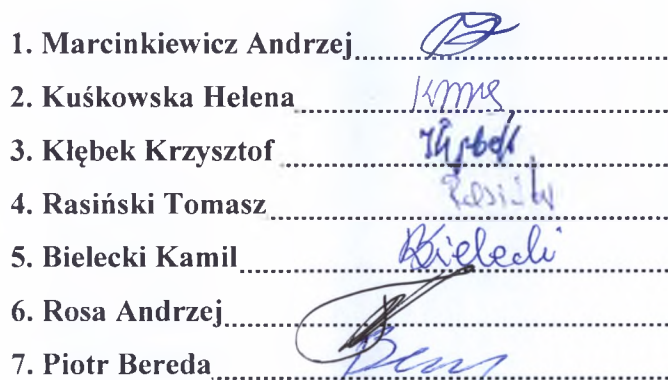 1. Marcinkiewicz Andrzej
2. Kuśkowska Helena
3. Kłębek Krzysztof
4. Rasiński Tomasz
5. Bielecki Kamil Bielecki
6. Rosa Andrzej
7. Piotr Bereda